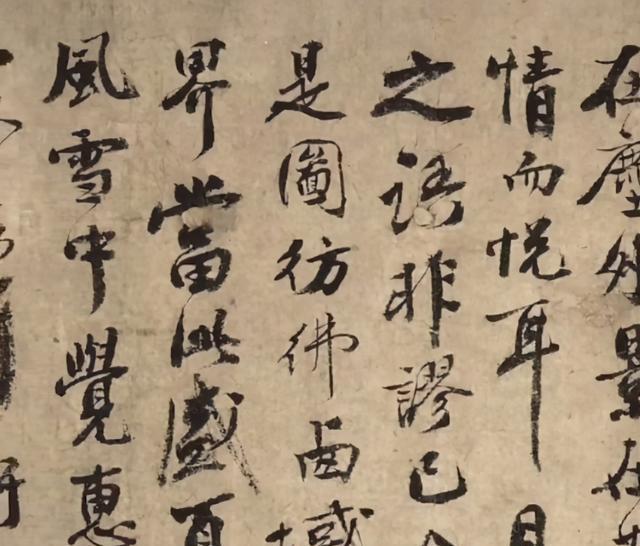 在塵外景在
情而悦耳目
之語非謬已
是圖彷彿卥域
界當此盛夏
風雪中覺惠